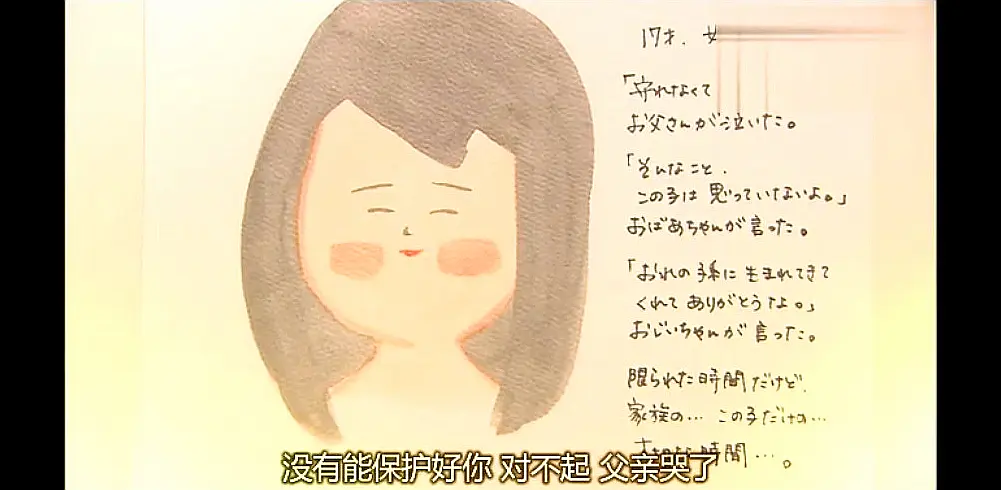 17才. 女
「守れなくて
お父さんが泣いた。
「そんなこと.
この子は思っていないよ。」
おばあちゃんが言った。
「おれの孫に生まれてきて
くれてありがとうな。」
おじいちゃんが言った。
限られた時間だけど.
家族の… この子だけの…
時間…。
没有能保护好你 对不起 父亲哭了